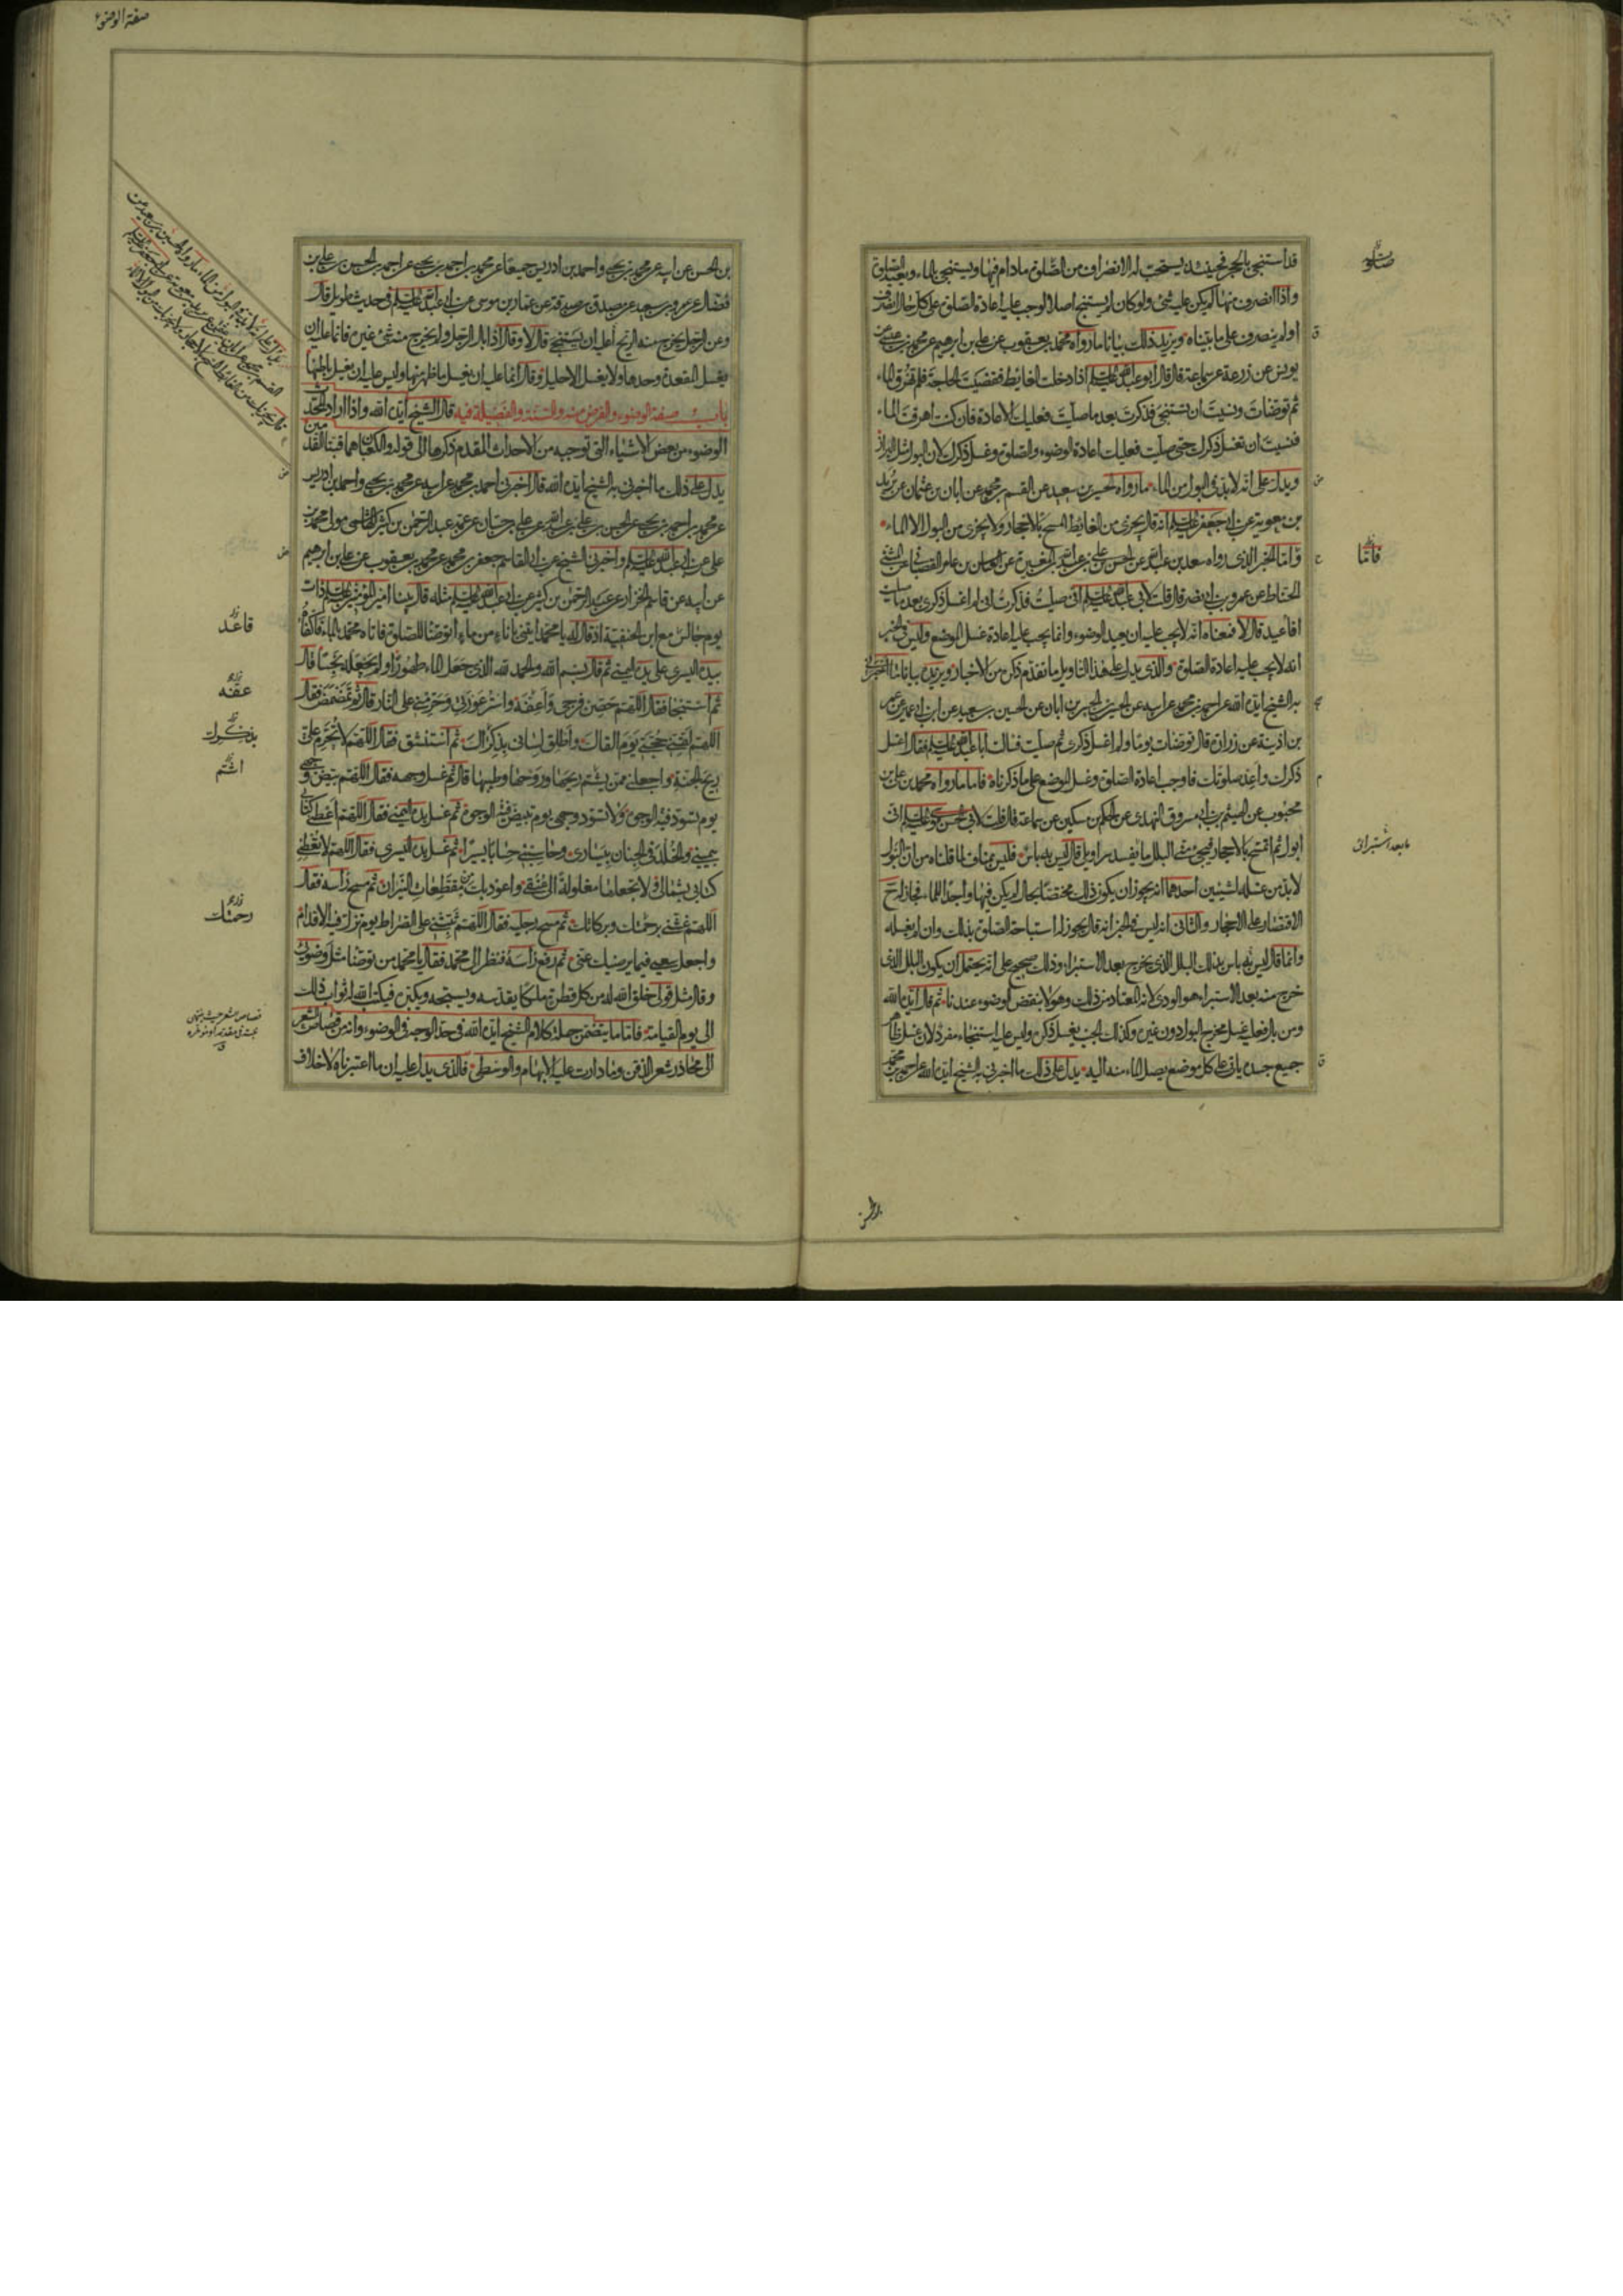 قد استنجى بالحجر فحينئذ يستحب له الانصراف من الصلوة مادام فيها ويستنجى بالماء ويعيد الصلوة
واذا انصرف منها لم يكن عليه شئ ولو كان لم يستنج اصلا لوجب عليه اعادة الصلوة على كل حال انصرف
او لم ينصرف على ما بيناه ويزيد ذلك بيانا ما رواه محمد بن يعقوب عن على بن ابراهيم عن محمد بن عيسى عن
يونس عن زرعة عن سماعة قال قال ابو عبد الله عليه السلم اذا دخلت الغايط فقضيت الحاجة فلم تهرق الماء
ثم توضات ونسيت ان تستنجى فذكرت بعد ما صليت فعليك الاعادة فان كنت اهرقت الماء
فنسيت ان تغسل ذكرك حتى صليت فعليك اعادة الوضوء والصلوة وغسل ذكرك لان البول مثل البراز
ويدل على انه لابد فى البول من الماء ما رواه الحسين بن سعيد عن القسم بن محمد عن ابان بن عثمان عن بريد
بن معوية عن ابى جعفر عليه السلم انه قال يجزى من الغايط المسح بالاحجار ولا يجزى من البول الا الماء
واما الخبر الذى رواه سعد بن عبد الله عن الحسن بن على بن عبد الله بن المغيرة عن العباس بن عامر القصبانى عن المثنى
الحناط عن عمرو بن ابى نصر قال قلت لابى عبد الله عليه السلم انى صليت فذكرت انى لم اغسل ذكرى بعد ما صليت
افاعيد قال لا فمعناه انه لا يجب عليه ان يعيد الوضوء وانما يجب عليه اعادة غسل الموضع وليس فى الخبر
انه لا يجب عليه اعادة الصلوة والذى يدل على هذا التاويل ما تقدم ذكره من الاخبار ويزيده بيانا ما اخبرنى
به الشيخ ايده الله عن احمد بن محمد عن ابيه عن الحسين بن الحسن بن ابان عن الحسين بن سعيد عن ابن ابى عمير عن عمر
بن اذينة عن زرارة قال توضات يوما ولم اغسل ذكرى ثم صليت فسالت ابا عبد الله عليه السلم فقال اغسل
ذكرك واعد صلوتك فاوجب اعادة الصلوة وغسل الموضع على ما ذكرناه فاما ما رواه محمد بن على بن
محبوب عن الهيثم بن ابى مسروق النهدى عن الحكم بن مسكين عن سماعة قال قلت لابى الحسن موسى عليه السلم انى
ابول ثم اتمسح بالاحجار فيجئ منى البلل ما يفسد سراويلى قال ليس به باس فليس بمناف لما قلناه من ان البول
لابد من غسله لشيئين احدهما انه يجوز ان يكون ذلك مختصا بحال لم يكن فيها واجدا للماء فجاز له ح
الاقتصار على الاحجار والثانى انه ليس فى الخبر انه قال يجوز له استباحة الصلوة بذلك وان لم يغسله
وانما قال ليس به باس بذلك البلل الذى يخرج بعد الاستبراء وذلك صحيح على انه يحتمل ان يكون البلل الذى
خرج منه بعد الاستبراء هو الودى لانه المعتاد من ذلك وهو لا ينقض الوضوء عندنا ثم قال ايده الله
ومن بال فعليه غسل مخرج البول دون غيره وكذلك الجنب يغسل ذكره وليس عليه استنجاء مفرد لان غسل ظاهر
جميع جسده ياتى على كل موضع يصل الماء منه اليه يدل على ذلك ما اخبرنى به الشيخ ايده الله عن احمد بن محمد
صفة الوضوء
بن الحسن عن ابيه عن محمد بن يحيى واحمد بن ادريس جميعا عن محمد بن احمد بن يحيى عن احمد بن الحسن بن على بن
فضال عن عمرو بن سعيد عن مصدق بن صدقة عن عمار بن موسى عن ابى عبد الله عليه السلم فى حديث طويل قال
وعن الرجل يخرج منه الريح أعليه ان يستنجى قال لا وقال اذا بال الرجل ولم يخرج منه شئ غيره فانما عليه ان
يغسل المقعدة وحدها ولا يغسل الاحليل وقال انما عليه ان يغسل ما ظهر منها وليس عليه ان يغسل باطنها
باب صفة الوضوء والفرض منه والسنة والفضيلة فيه قال الشيخ ايده الله واذا اراد المحدث
الوضوء من بعض الاشياء التى توجبه من الاحداث المقدم ذكرها الى قوله والكعبان هما قبتا القدمين
يدل على ذلك ما اخبرنى به الشيخ ايده الله قال اخبرنى احمد بن محمد عن ابيه عن محمد بن يحيى واحمد بن ادريس
عن محمد بن احمد بن يحيى عن الحسن بن على بن عبد الله عن على بن حسان عن عمه عبد الرحمن بن كثير الهاشمى مولى محمد بن
على عن ابى عبد الله عليه السلم واخبرنى الشيخ عن ابى القاسم جعفر بن محمد عن محمد بن يعقوب عن على بن ابرهيم
عن ابيه عن قاسم الخزاز عن عبد الرحمن بن كثير عن ابى عبد الله عليه السلم مثله قال بينا امير المؤمنين عليه السلم ذات
يوم جالس مع ابن الحنفية اذ قال له يا محمد ايتنى باناء من ماء اتوضأ للصلوة فاتاه محمد بالماء فاكفأه
بيده اليسرى على يده اليمنى ثم قال بسم الله والحمد لله الذى جعل الماء طهورا ولم يجعله نجسا قال
ثم استنجا فقال اللهم حصن فرجى واعفه واستر عورتى وحرمنى على النار قال ثم تمضمض فقال
اللهم لقنى حجتى يوم القاك واطلق لسانى بذكراك ثم استنشق فقال اللهم لا تحرم على
ريح الجنة واجعلنى ممن يشم ريحها وروحها وطيبها قال ثم غسل وجهه فقال اللهم بيض وجهى
يوم تسود فيه الوجوه ولا تسود وجهى يوم تبيض فيه الوجوه ثم غسل يده اليمنى فقال اللهم اعطنى كتابى
بيمينى والخلد فى الجنان بيسارى وحاسبنى حسابا يسيرا ثم غسل يده اليسرى فقال اللهم لا تعطنى
كتابى بشمالى ولا تجعلها مغلولة الى عنقى واعوذ بك من مقطعات النيران ثم مسح راسه فقال
اللهم غشنى برحمتك وبركاتك ثم مسح رجليه فقال اللهم ثبتنى على الصراط يوم تزل فيه الاقدام
واجعل سعيى فيما يرضيك عنى ثم رفع راسه فنظر الى محمد فقال يا محمد من توضأ مثل وضوئى
وقال مثل قولى خلق الله له من كل قطرة ملكا يقدسه ويسبحه ويكبره فيكتب الله له ثواب ذلك
الى يوم القيامة فاما ما يتضمن جملة كلام الشيخ ايده الله فى حد الوجه فى الوضوء وانه من قصاص الشعر
الى محاذر شعر الذقن وما دارت عليه الابهام والوسطى فالذى يدل عليه ان ما اعتبرناه لا خلاف
قاعد
عفه
بذكرك
اشتم
رحمتك